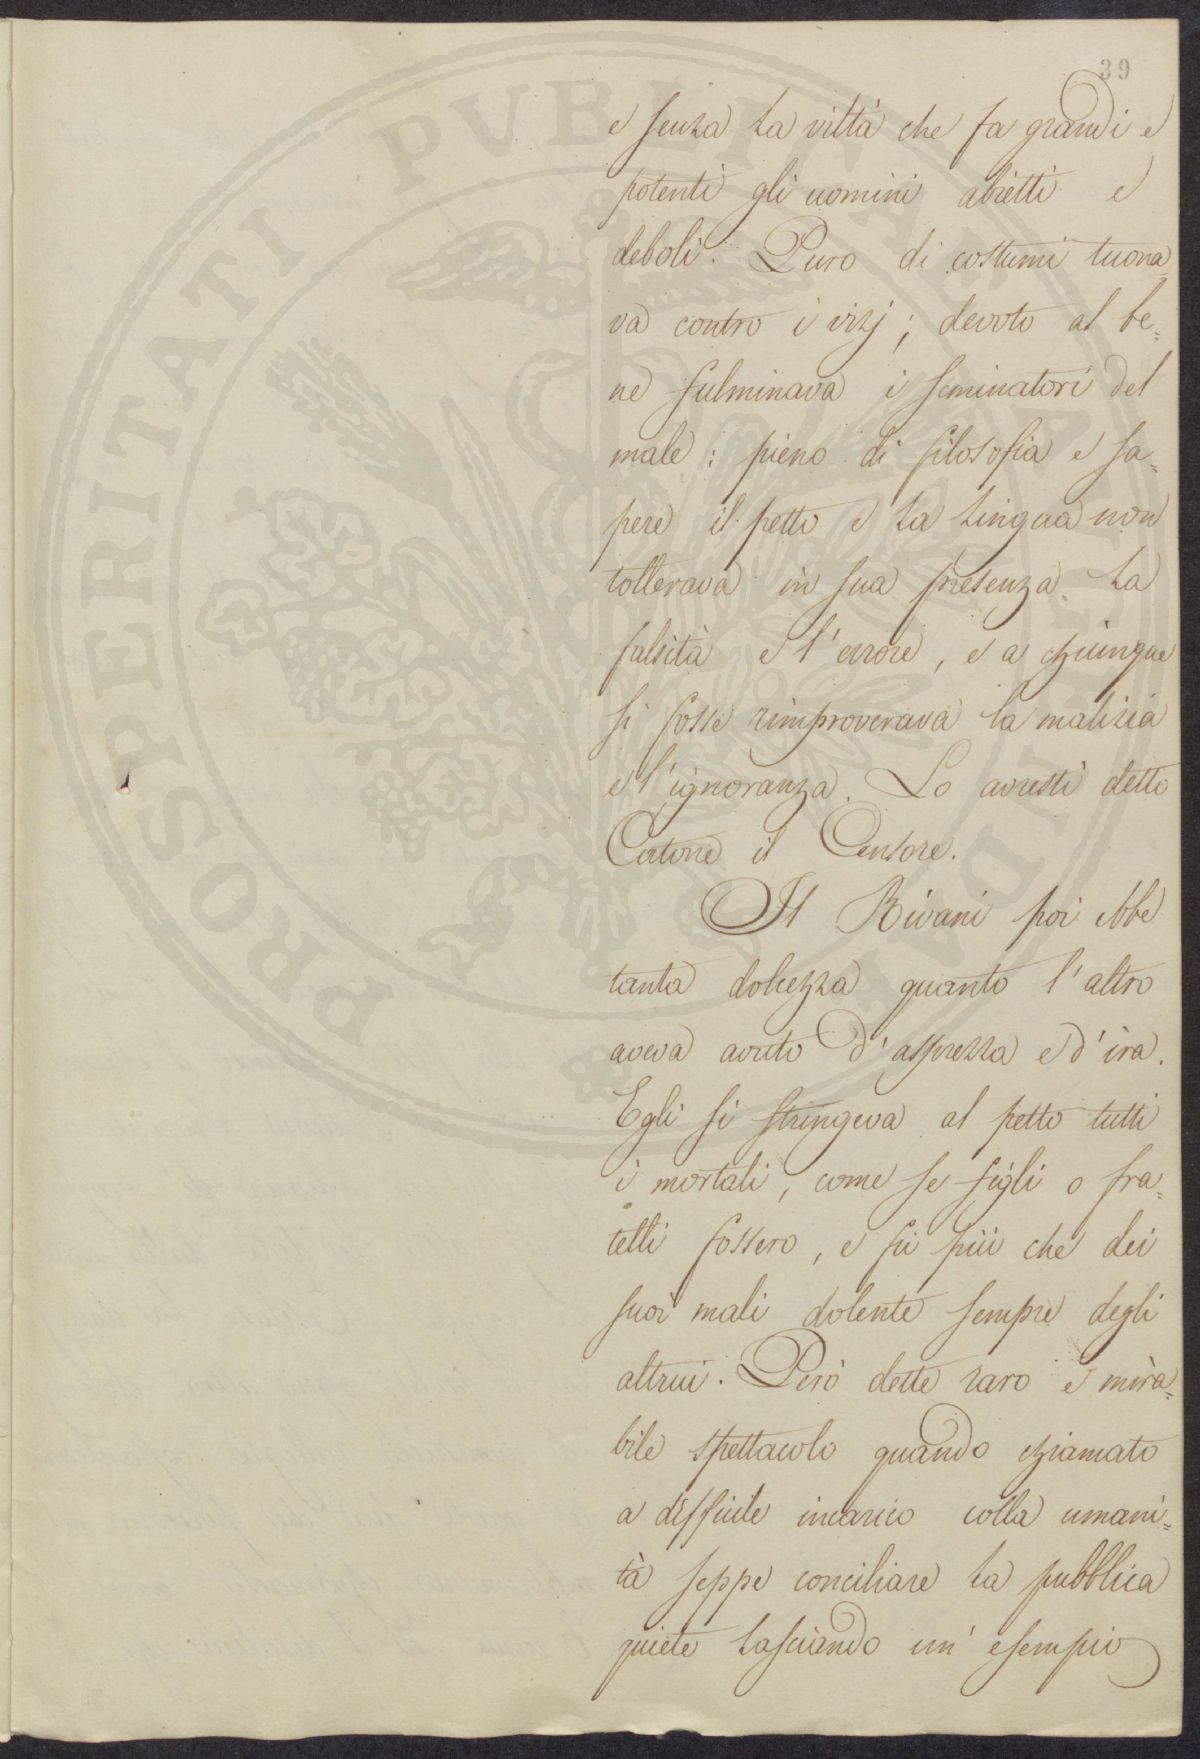 39
e senza la viltà che fa grandi e
potenti gli uomini abietti e
deboli. Puro di costumi tuona=
va contro i vizj; devoto al be=
ne fulminava i seminatori del
male: pieno di filosofia e sa=
pere il petto e la lingua non
tollerava in sua presenza la
falsità e l'errore, e a chiunque
si fosse rimproverava la malizia
e l'ignoranza. Lo avresti detto
Catone il Censore.
Il Rivani poi ebbe
tanta dolcezza quanto l'altro
aveva avuto d'asprezza e d'ira.
Egli si stringeva al petto tutti
i mortali, come se figli o fra=
telli fossero, e fu più che dei
suoi mali dolente sempre degli
altrui. Però dette raro e mira=
bile spettacolo quando chiamato
a difficile incarico colla umani=
tà seppe conciliare la pubblica
quiete lasciando un' esempio
PROSPERITATI PUBLICAE